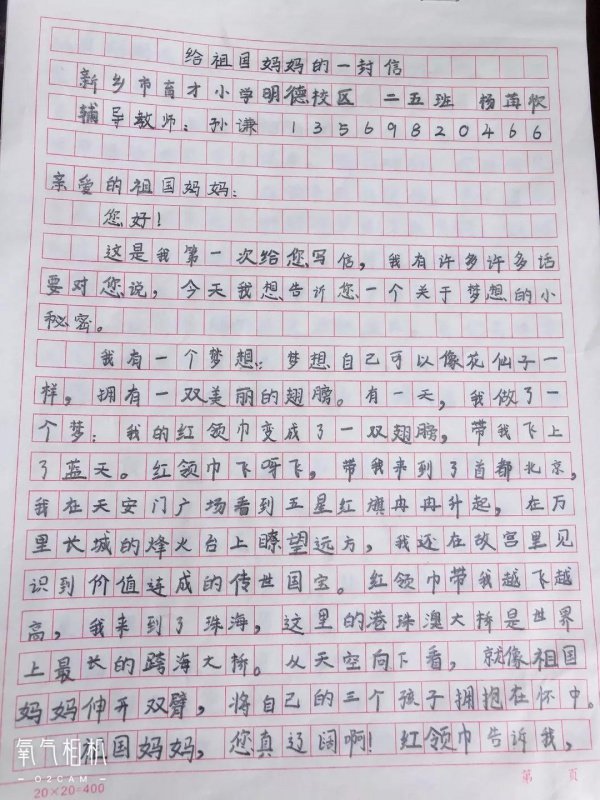 给祖国妈妈的一封信
新乡市育才小学明德校区 二五班 杨苒
辅导教师：孙谦 13569820466
亲爱的祖国妈妈：
您好！
这是我第一次给您写信，我有许多许多话
要对您说，今天我想告诉您一个关于梦想的小
秘密。
我有一个梦想：梦想自己可以像花仙子一
样，拥有一双美丽的翅膀。有一天，我做了一
个梦：我的红领巾变成了一双翅膀，带我飞上
了蓝天。红领巾飞呀飞，带我来到了首都北京，
我在天安门广场看到五星红旗冉冉升起，在万
里长城的烽火台上瞭望远方，我还在故宫里见
识到价值连成的传世国宝。红领巾带我越飞越
高，我来到了珠海，这里的港珠澳大桥是世界
上最长的跨海大桥。从天空向下看，就像祖国
妈妈伸开双臂，将自己的三个孩子拥抱在怀中。
国妈妈，您真辽阔啊！红领巾告诉我，
氧气相机
O2CAM
20×20=400
第 页